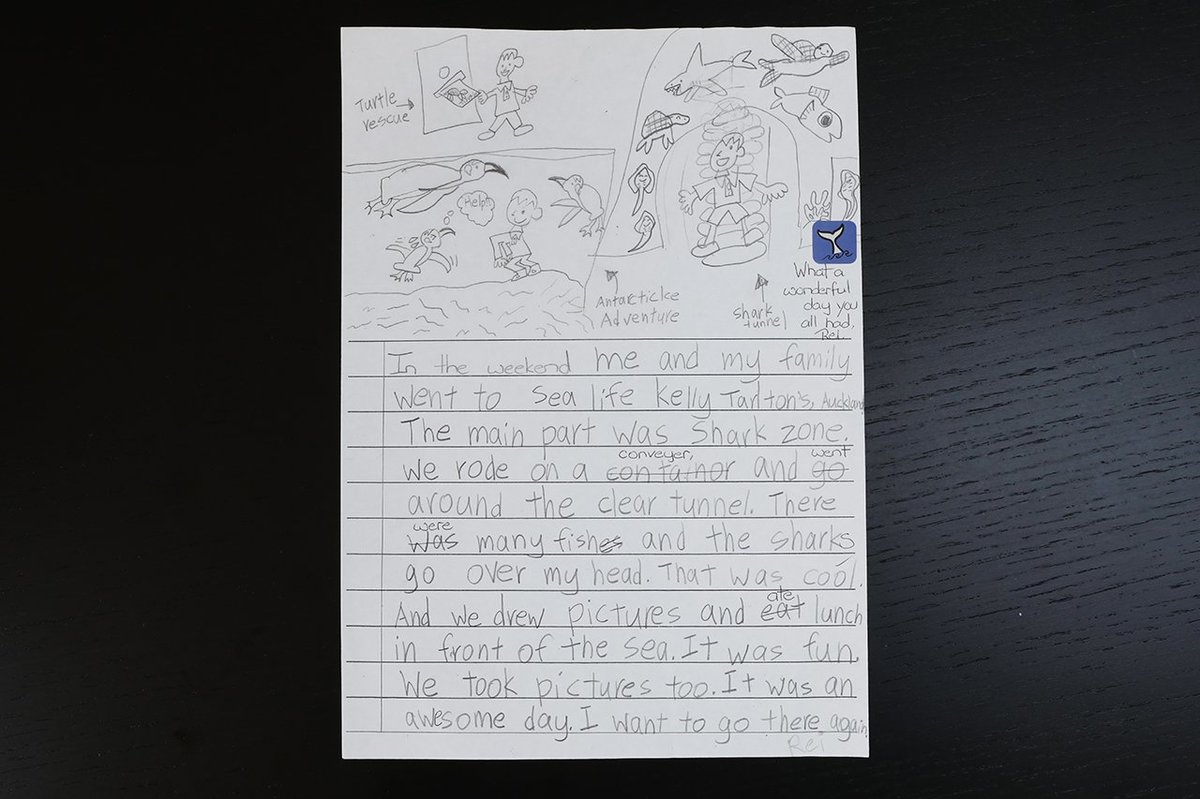 Turtle
rescue
Help!
Antarctic Ice
Adventure
Shark
tunnel
What a
wonderful
day you
all had,
Rei.
In the weekend me and my family
went to Sea life Kelly Tarlton's, Auckland
The main part was Shark zone.
conveyer, went
we rode on a containor and go
around the clear tunnel. There
were
was many fishes and the sharks
go over my head. That was cool.
ate
And we drew pictures and eat lunch
in front of the sea. It was fun.
We took pictures too. It was an
awesome day. I want to go there again
Rei